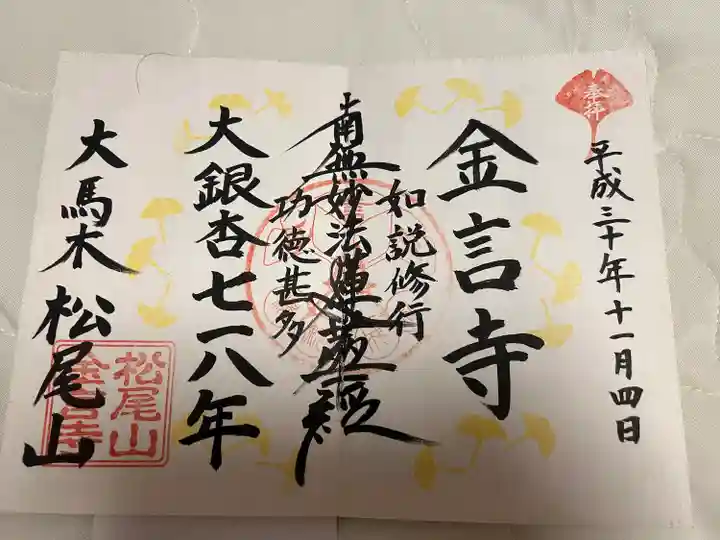 奉拝
平成三十年十一月四日
金言寺
如説修行
南無妙法蓮華経
功徳甚多
大銀杏七一八年
大馬木松尾山
松尾山
金言寺